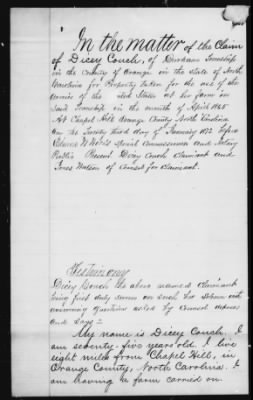 In the matter of the Claim
of Dicey Couch, of Durham Township
in the County of Orange in the State of North
Carolina for Property taken for the use of the
Armies of the United States at her farm in
Said Township in the month of April 1865
At Chapel Hill Orange County North Carolina
on the Twenty third day of January 1872 before
Special Commissioner and Notary
Public Present Dicey Couch claimant and
Jones Watson of Counsel for Claimant.
Testimony
Dicey Couch the above named Claimant
being first duly sworn on oath her
answering questions asked by Counsel deposes
and Says:
My name is Dicey Couch. I
am seventy-five years old. I live
eight miles from Chapel Hill, in
Orange County, North Carolina. I
am having a farm carried on